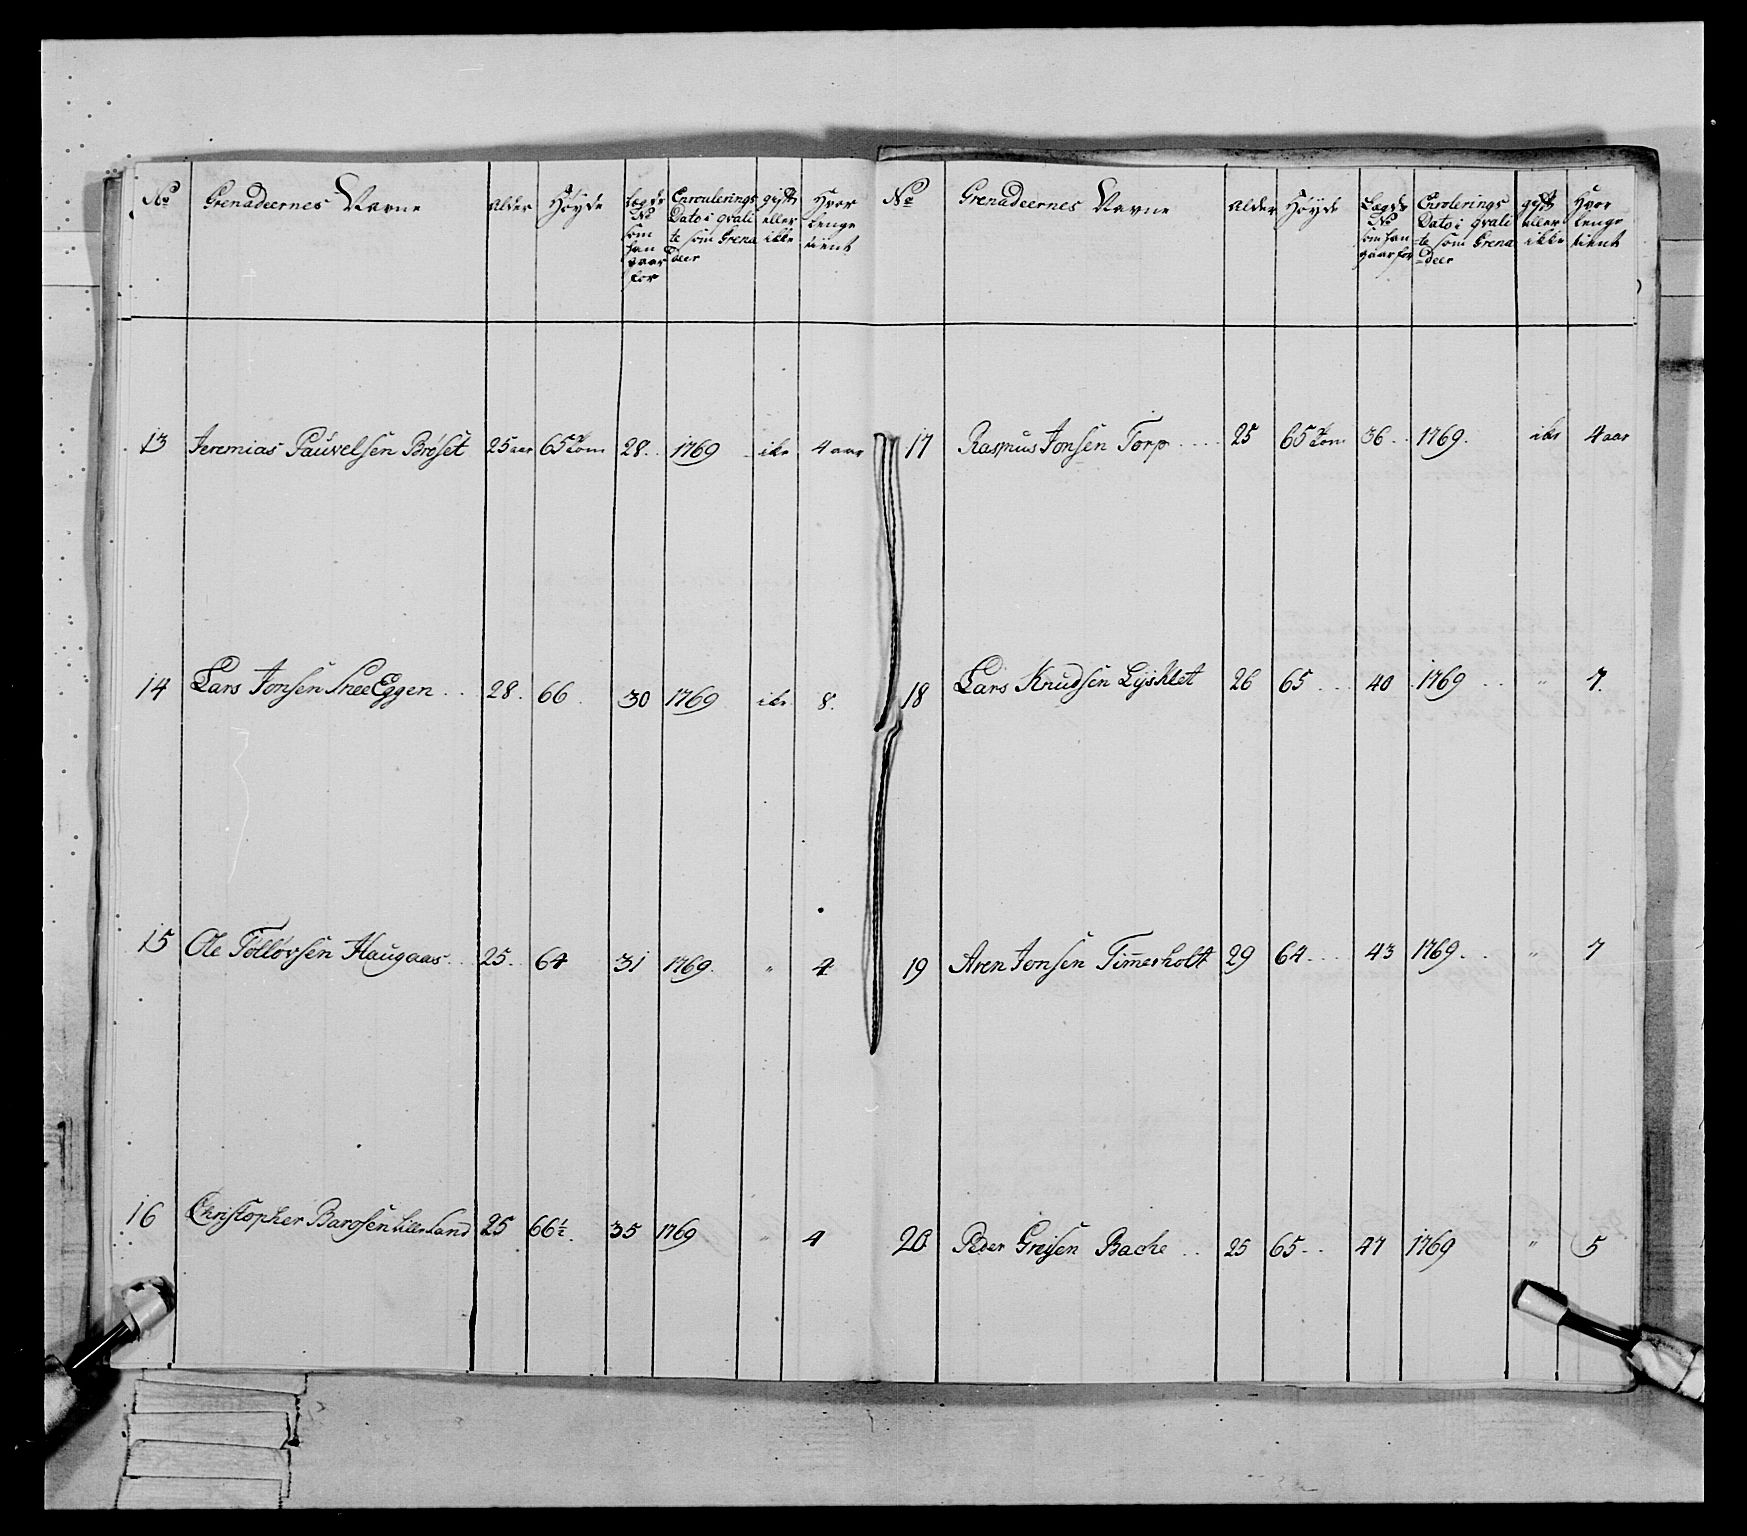 No Grenadeernes Navne Alder Høyde Lægds No som han staar for Enroulerings Dato i qvalite som Grenadeer gift eller ikke Hvor lenge tient
13 Jeremias Pauvelsen Brøset 25 aar 65 Tom 28. 1769 ike 4 aar
14 Lars Jonsen SneeEggen 28. 66. 30 1769 ike 8.
15 Ole Tølløvsen Haugaas 25. 64 31 1769. " 4
16 Christopher Barosen Lille Sand 25 66½. 35 1769 " 4
No Grenadeernes Navne Alder Høyde Lægds No som han staar for Enrolerings Dato i qvali-te som Grena-deer gift eller ikke Hvor lenge tient
17 Rasmus Jonsen Torp 25 65 Tom 36. 1769. ike 4 aar
18 Lars Knudsen Lysklet 26 65 40 1769 " 7.
19 Aren Jonsen Timerholt 29 64 43 1769. " 7
20 Peder Greisen Bache 25 65 47 1769 " 5